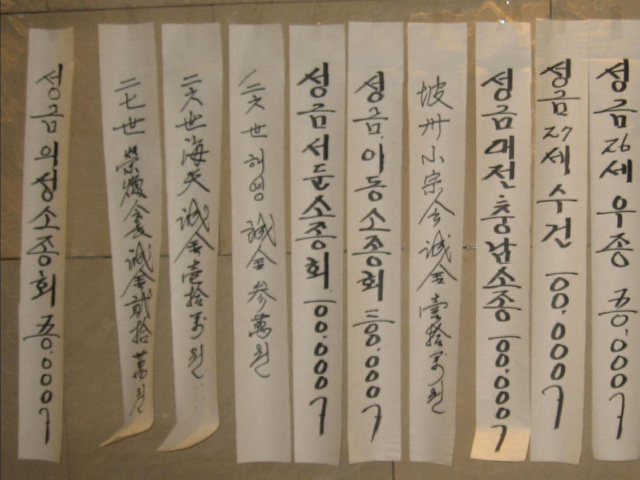 성금 의성소종회 五0.000
二七世 榮煥 誠金 貳拾萬원
二六世 海天 誠金 壹拾萬원
二六世 허영 誠金 參萬원
성금 서둔소종회 一00.000
성금 이동소종회 一00.000
坡州小宗会 誠金 壹拾萬원
성금 대전충남소종 一00.000
성금 27세 수건 一00.000
성금 26세 우종 五0.000